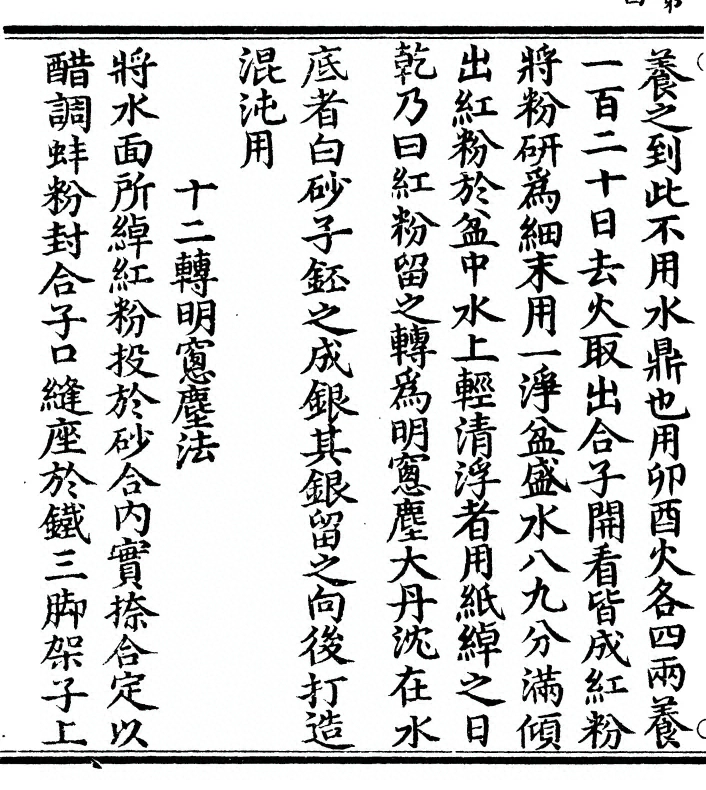 養之到此不用水鼎也用卯酉火各四兩養
一百二十日去火取出合子開看皆成紅粉
將粉硏爲細末用一淨盆盛水八九分滿傾
出紅粉於盆中水上輕清浮者用紙綽之日
乾乃曰紅粉留之轉爲明窻塵大丹沈在水
底者白砂子䤵之成銀其銀留之向後打造
混沌用
十二轉明窻塵法
將水面所綽紅粉投於砂合內實捺合定以
醋調蚌粉封合子口縫座於鐵三脚架子上